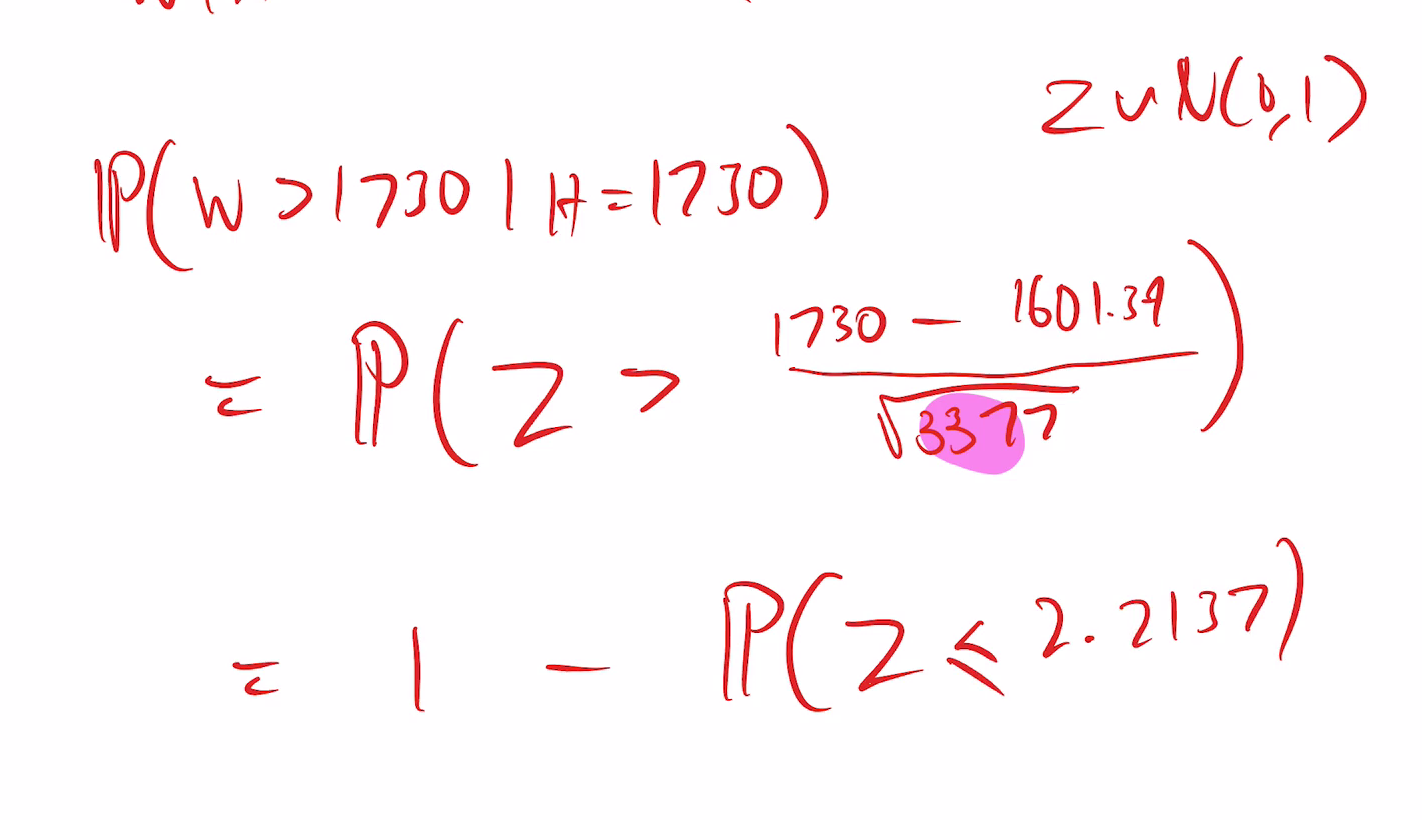 Z ~ N(0,1)
ℙ(W > 1730 | H = 1730)
= ℙ(Z > (1730 − 1601.34) / √3377)
= 1 − ℙ(Z ≤ 2.2137)